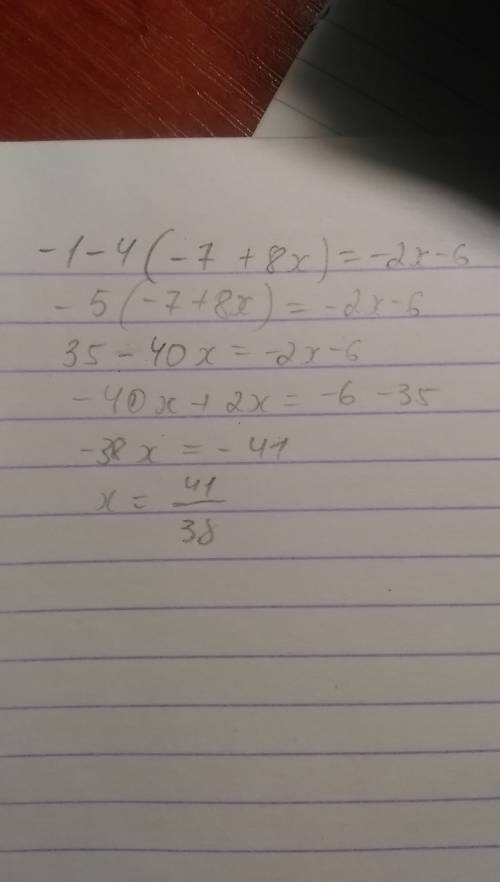 -1-4(-7+8x)=-2x-6
-5(-7+8x)=-2x-6
35-40x=-2x-6
-40x+2x=-6-35
-38x=-41
x=41/38